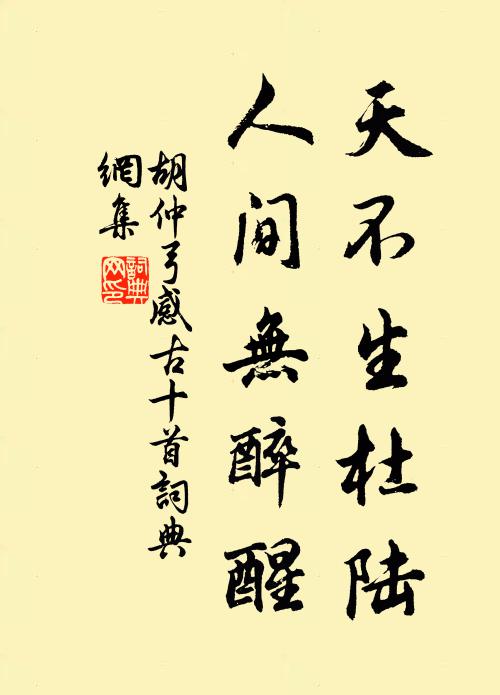 天不生杜陆
人间無醉醒
胡仲弓感古十首詞典
網集
詞典
网印